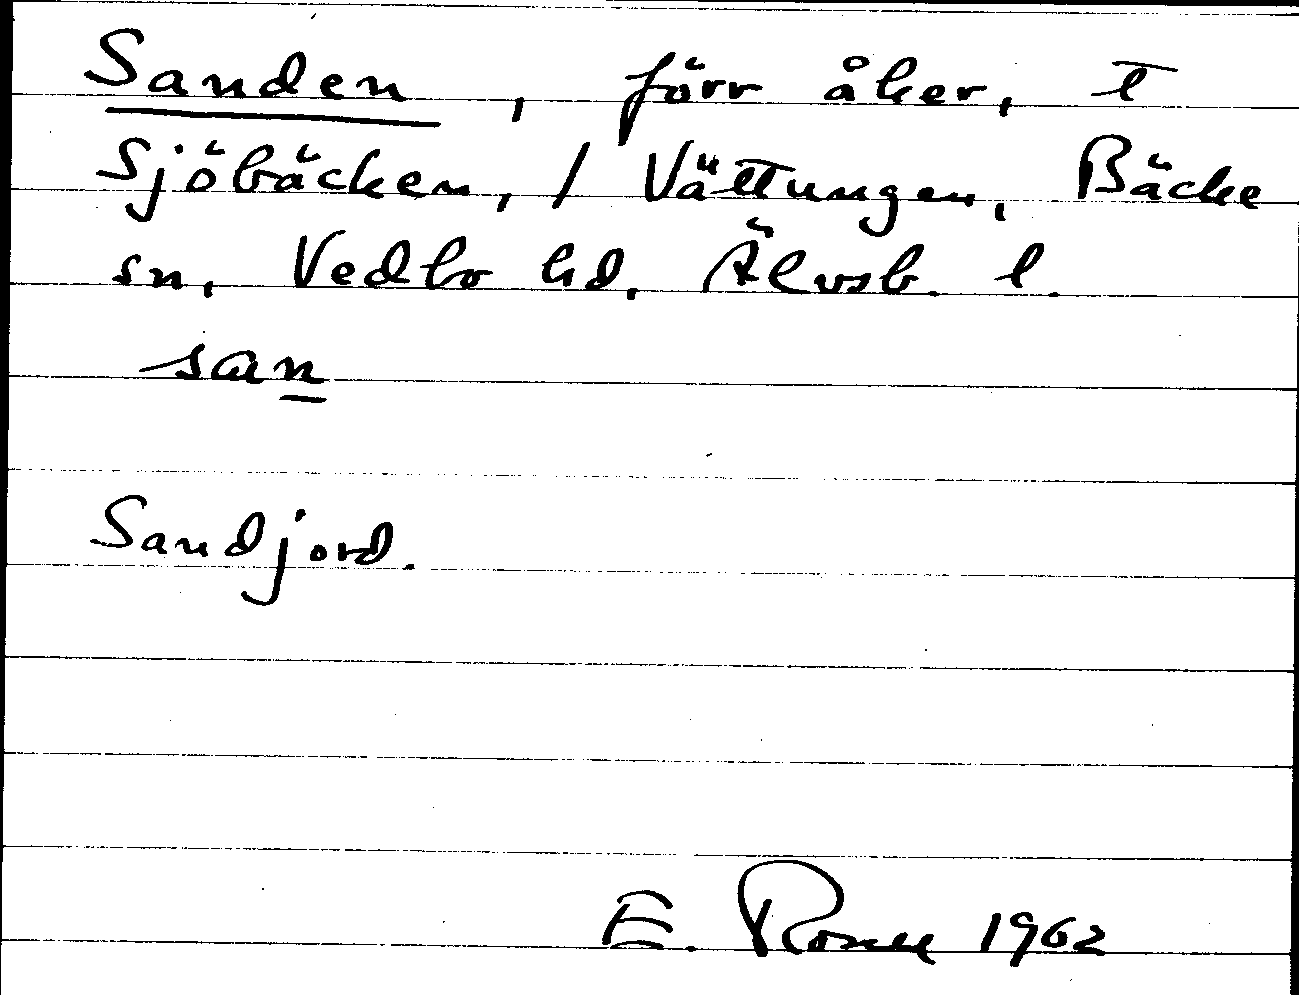 Sanden, förr åker, t
Sjöbäcken, / Vättungen, Bäcke
sn, Vedbo hd, Älvsb. l.
san
Sandjord.
E. 1962